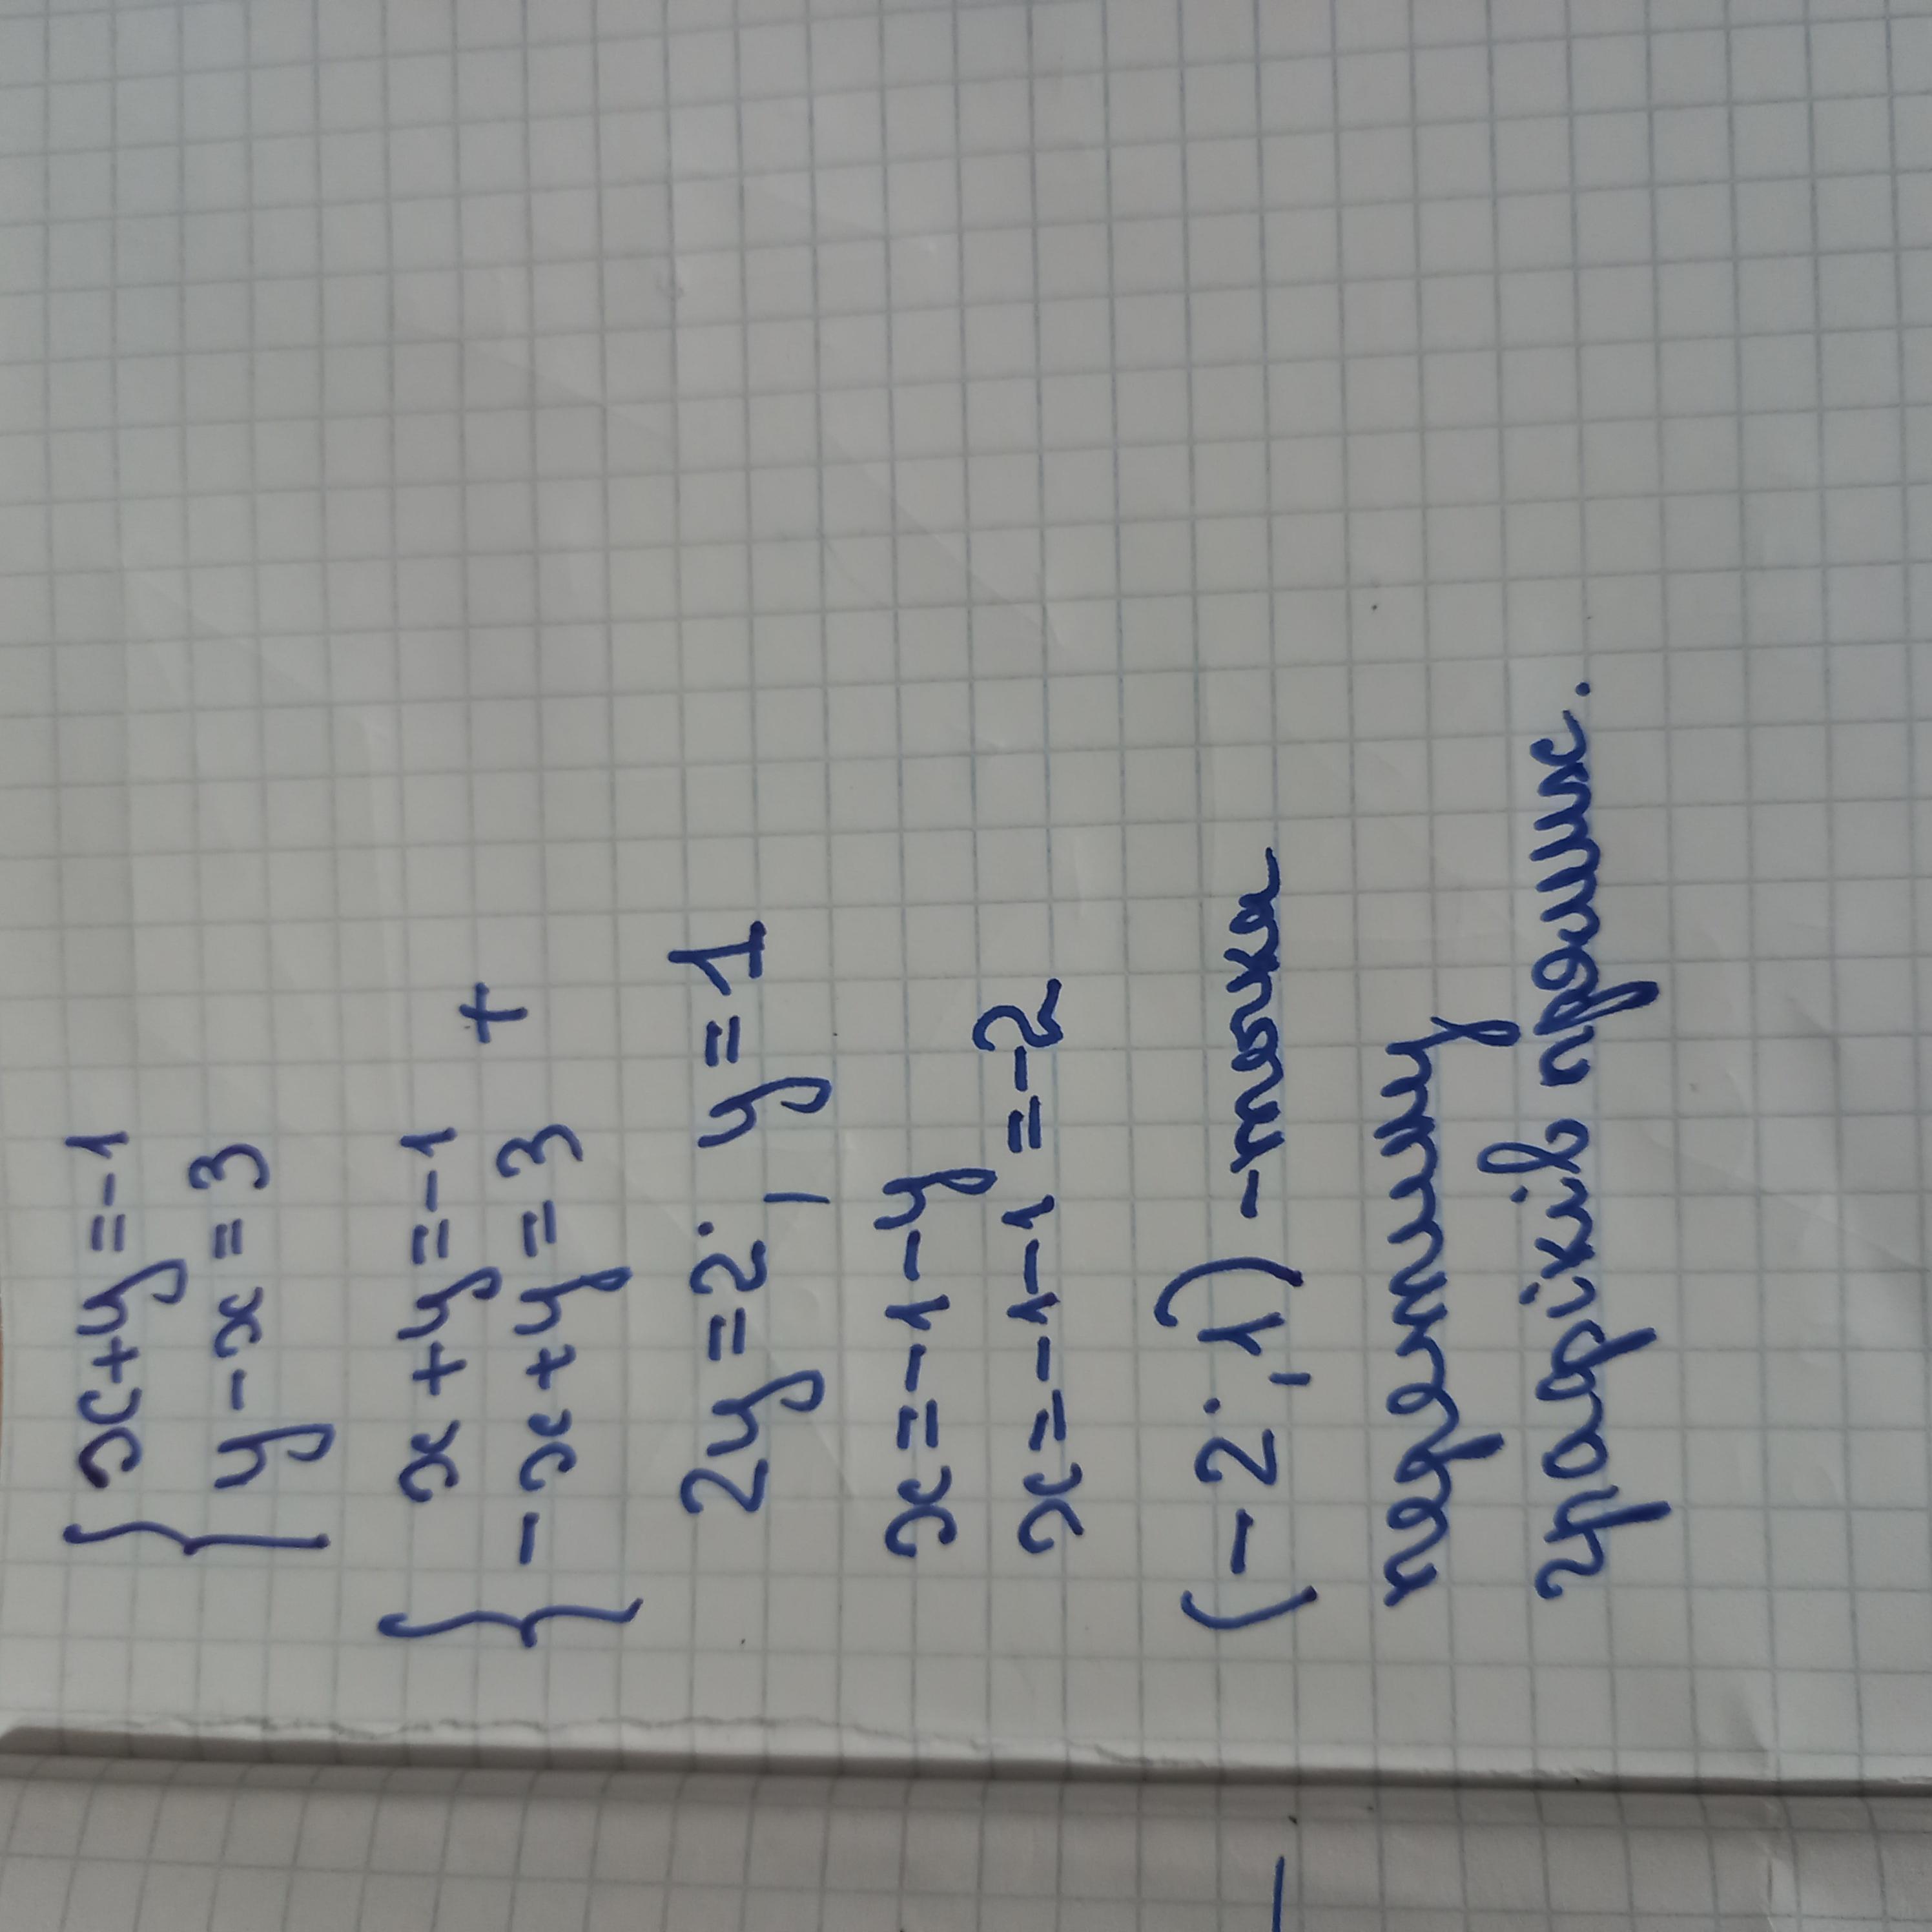 { x+y=-1
y-x=3
{ x+y=-1
-x+y=3 +
2y=2; y=1
x=-1-y
x=-1-1=-2
(-2;1) -точка
перетину
графіків прямих.